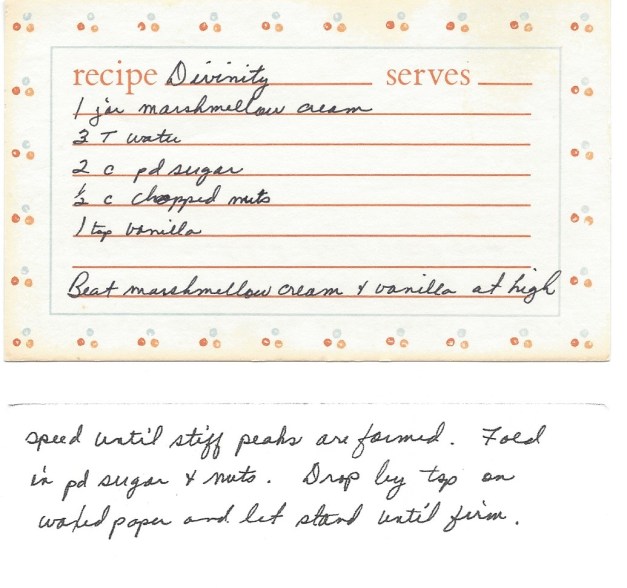 recipe Divinity serves
1 jar marshmellow cream
3 T water
2 c pd sugar
½ c chopped nuts
1 tsp vanilla
Beat marshmellow cream & vanilla at high
speed until stiff peaks are formed. Fold
in pd sugar & nuts. Drop by tsp on
waxed paper and let stand until firm.